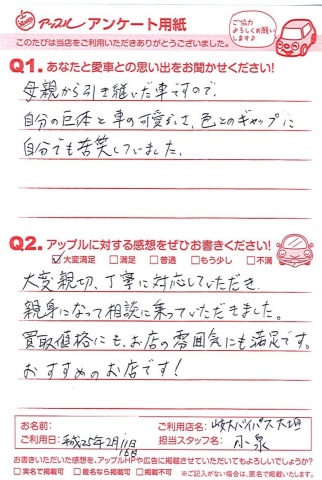 アップル アンケート用紙
このたびは当店をご利用いただきありがとうございました。
ご協力
よろしくお願い
します♪
Q1. あなたと愛車との思い出をお聞かせください!
母親から引き継いだ車ですので、
自分の巨体と車の可愛さ、色とのギャップに
自分でも苦笑していました。
Q2. アップルに対する感想をぜひお書きください!
☑大変満足 □満足 □普通 □もう少し □不満
大変親切、丁寧に対応していただき、
親身になって相談に乗っていただきました。
買取価格にも、お店の雰囲気にも満足です。
おすすめのお店です!
お名前: ご利用店名: 岐大バイパス大垣
ご利用日: 平成25年2月11日
16日
担当スタッフ名: 小泉
お書きいただいた感想を、アップルHPや広告に掲載させていただいてもよろしいでしょうか?
□実名で掲載可 □匿名なら掲載可 □掲載不可 ※ご記入がない場合は、匿名で掲載いたします。